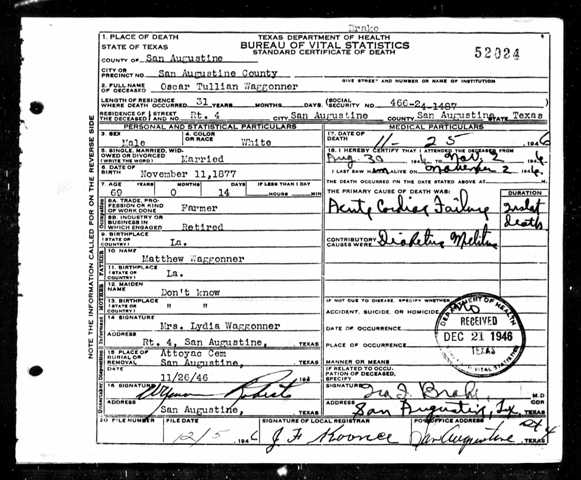 Drake
TEXAS DEPARTMENT OF HEALTH
BUREAU OF VITAL STATISTICS
STANDARD CERTIFICATE OF DEATH
52024
1. PLACE OF DEATH
STATE OF TEXAS
COUNTY OF San Augustine
CITY OR PRECINCT NO. San Augustine County
GIVE STREET AND NUMBER OR NAME OF INSTITUTION
2. FULL NAME OF DECEASED Oscar Tullian Waggonner
LENGTH OF RESIDENCE WHERE DEATH OCCURRED 31 YEARS MONTHS DAYS (SOCIAL SECURITY NO. 466-24-1487
RESIDENCE OF THE DECEASED STREET AND NO. Rt. 4 CITY San Augustine COUNTY San Augustine STATE Texas
PERSONAL AND STATISTICAL PARTICULARS
3. SEX Male
4. COLOR OR RACE White
5. SINGLE, MARRIED, WIDOWED OR DIVORCED (WRITE IN) Married
6. DATE OF BIRTH November 11,1877
7. AGE 69 YEARS 0 MONTHS 14 DAYS IF LESS THAN 1 DAY HOURS MIN
8A. TRADE, PROFESSION OR KIND OF WORK DONE Farmer
8B. INDUSTRY OR BUSINESS IN WHICH ENGAGED Retired
9. BIRTHPLACE (STATE OR COUNTRY) La.
FATHER
10. NAME Matthew Waggonner
11. BIRTHPLACE (STATE OR COUNTRY) La.
MOTHER
12. MAIDEN NAME Don't know
13. BIRTHPLACE (STATE OR COUNTRY) " "
14. SIGNATURE Mrs. Lydia Waggonner
ADDRESS Rt. 4, San Augustine, TEXAS
15. PLACE OF BURIAL OR REMOVAL Attoyac Cem San Augustine, TEXAS
DATE 11/26/46 194
16. SIGNATURE Roberts
ADDRESS San Augustine, TEXAS
MEDICAL PARTICULARS
17. DATE OF DEATH 11-25 1946
18. I HEREBY CERTIFY THAT I ATTENDED THE DECEASED FROM Aug 30 1946 TO Nov. 2 1946
I LAST SAW him ALIVE ON November 2 1946
THE DEATH OCCURRED ON THE DATE STATED ABOVE AT M
THE PRIMARY CAUSE OF DEATH WAS: DURATION
Acute Cardiac Failure
death
CONTRIBUTORY CAUSES WERE: Diabetus Melitus
IF NOT DUE TO DISEASE, SPECIFY WHETHER:
ACCIDENT, SUICIDE, OR HOMICIDE no
DATE OF OCCURRENCE
PLACE OF OCCURRENCE
MANNER OR MEANS
IF RELATED TO OCCUPATION OF DECEASED, SPECIFY
DEPARTMENT OF HEALTH
RECEIVED
DEC 21 1946
TEXAS
VITAL STATISTICS
SIGNATURE Ira I. Brake M.D. COR
ADDRESS San Augustine, Tx. TEXAS
Rt 4
20 FILE NUMBER
FILE DATE 12/5 1946
SIGNATURE OF LOCAL REGISTRAR J F Koonce
POST OFFICE ADDRESS San Augustine, TEXAS
NOTE THE INFORMATION CALLED FOR ON THE REVERSE SIDE